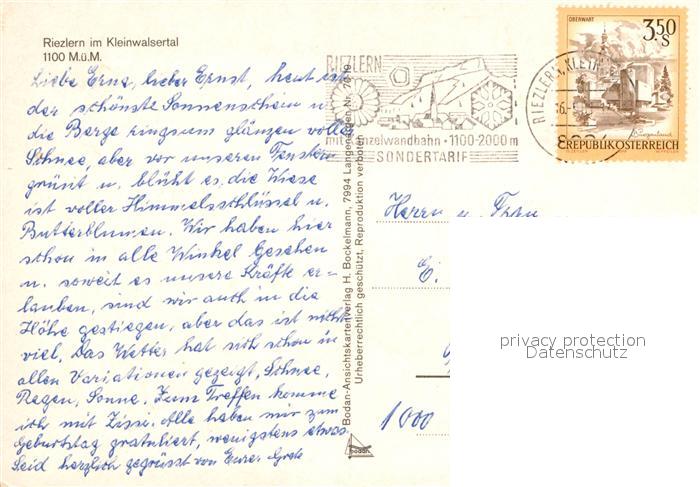 Riezlern im Kleinwalsertal
1100 M.ü.M.
Liebe Erna, lieber Ernst, heut ist
der schönste Sonnenschein u.
die Berge ringsum glänzen voller
Schnee, aber vor unseren Fenstern
grünt u. blüht es, die Wiese
ist voller Himmelsschlüssel u.
Butterblumen. Wir haben hier
schon in alle Winkel gesehen
u. soweit es unsere Kräfte er-
lauben, sind wir auch in die
Höhe gestiegen, aber das ist nicht
viel. Das Wetter hat sich schon in
allen Variationen gezeigt, Schnee,
Regen, Sonne. Zum Treffen komme
ich mit Zissi. Alle haben mir zum
Geburtstag gratuliert, wenigstens etwas.
Seid herzlich gegrüsst von Eurer Grete
Bodan-Ansichtskartenverlag H. Bockelmann, 7994 Langenargen Nr.
Urheberrechtlich geschützt, Reproduktion verboten
bodan
RIEZLERN
mit Kanzelwandbahn · 1100-2000 m
SONDERTARIF
RIEZLERN, KLEIN
OBERWART
3.50
S
Burgenland
REPUBLIK ÖSTERREICH
Herrn u. Frau
E.
1000
privacy protection
Datenschutz